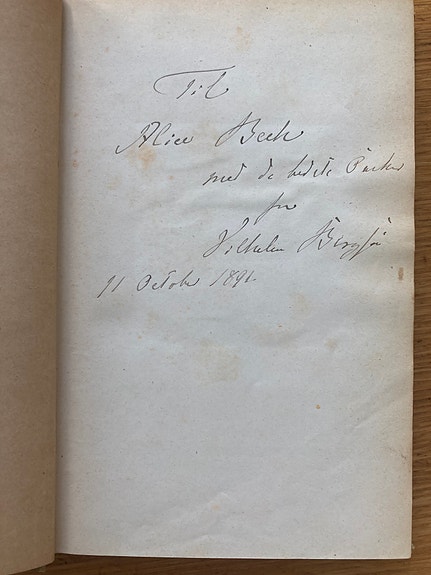 Til
Alice Beck
med de bedste Ønsker
fra
Vilhelm Bergsøe
11 October 1891.